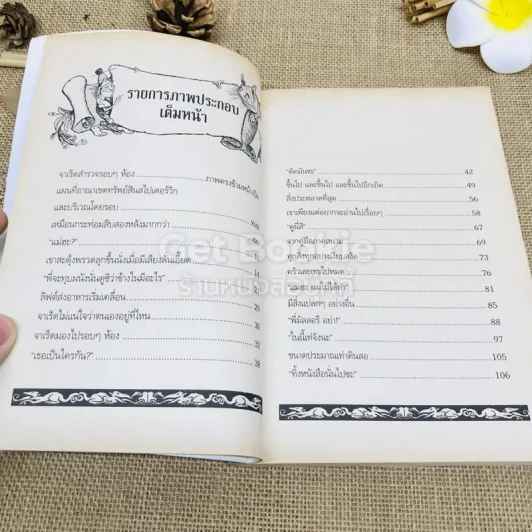 รายการภาพประกอบ
เต็มหน้า
จาเร็ดสำรวจรอบๆ ห้อง
ภาพตรงข้ามหน้า
แผนที่อาณาเขตทรัพย์สินสไปเดอร์วิก
และบริเวณโดยรอบ
เหมือนกระท่อมสิบสองหลังมากกว่า
"แม่ฮะ?"
เขาสะดุ้งพรวดลุกขึ้นนั่งเมื่อมีเสียงลั่นเอี๊ยด
"พี่จะทุบผนังนั่นดูซิว่าข้างในมีอะไร"
14
ลิฟต์ส่งอาหารเริ่มเคลื่อน
จาเร็ดไม่แน่ใจว่าตนเองอยู่ที่ไหน
30
จาเร็ดมองไปรอบๆ ห้อง
32
"เธอเป็นใครกัน?"
38
"ตัดมันซะ"
42
ขึ้นไป และขึ้นไป และขึ้นไปอีกเถิด
49
สิ่งประหลาดที่สุด
56
เขาเพียงแต่อยากจะอ่านไปเรื่อยๆ
58
"ดูนี่สิ"
67
จากคู่มือภาคสนาม
69
ทุกสิ่งทุกอย่างเงียบสงัด
73
ครัวเละเทะไปหมด
76
"แม่ฮะ ผมไม่ได้ทำ"
มีสิ่งแปลกๆ อย่างอื่น
85
"พี่มัลลอรี อย่า!"
88
"ในนี้เท่จังนะ"
97
ขนาดประมาณเท่าดินสอ
105
"ทิ้งหนังสือนั่นไปซะ"
106
Get Bookie
ร้านหนังสือ